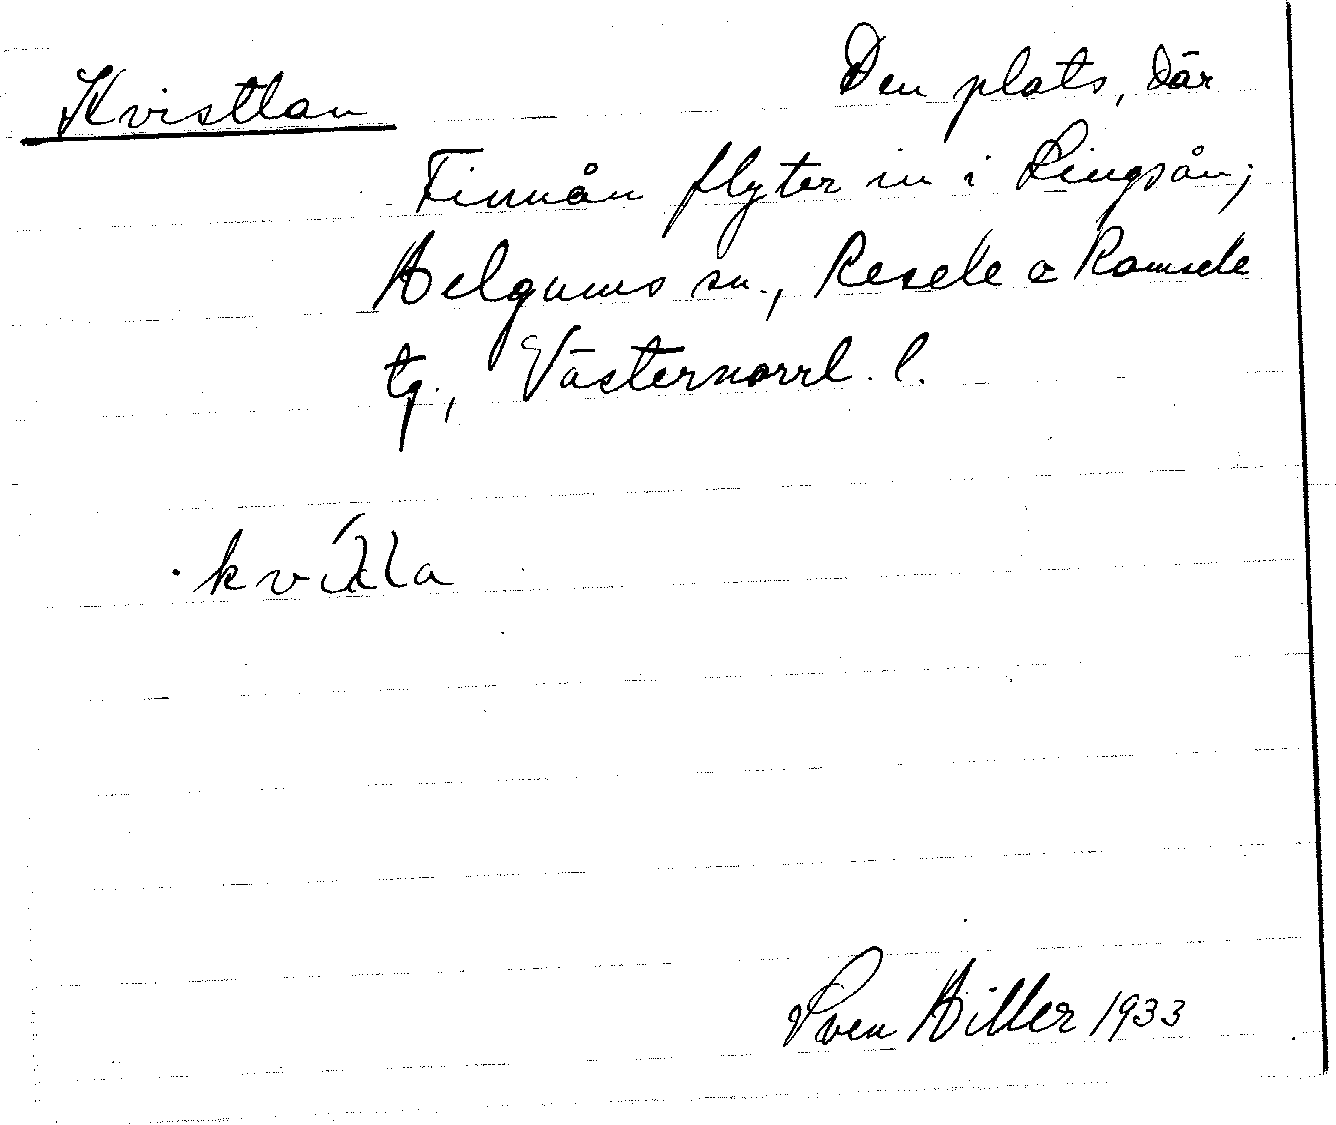 Kvistlan
Den plats, där
Finnån flyter in i Lingsån;
Helgums sn., Resele o Ramsele
tg., Västernorrl. l.
Sven Hiller 1933